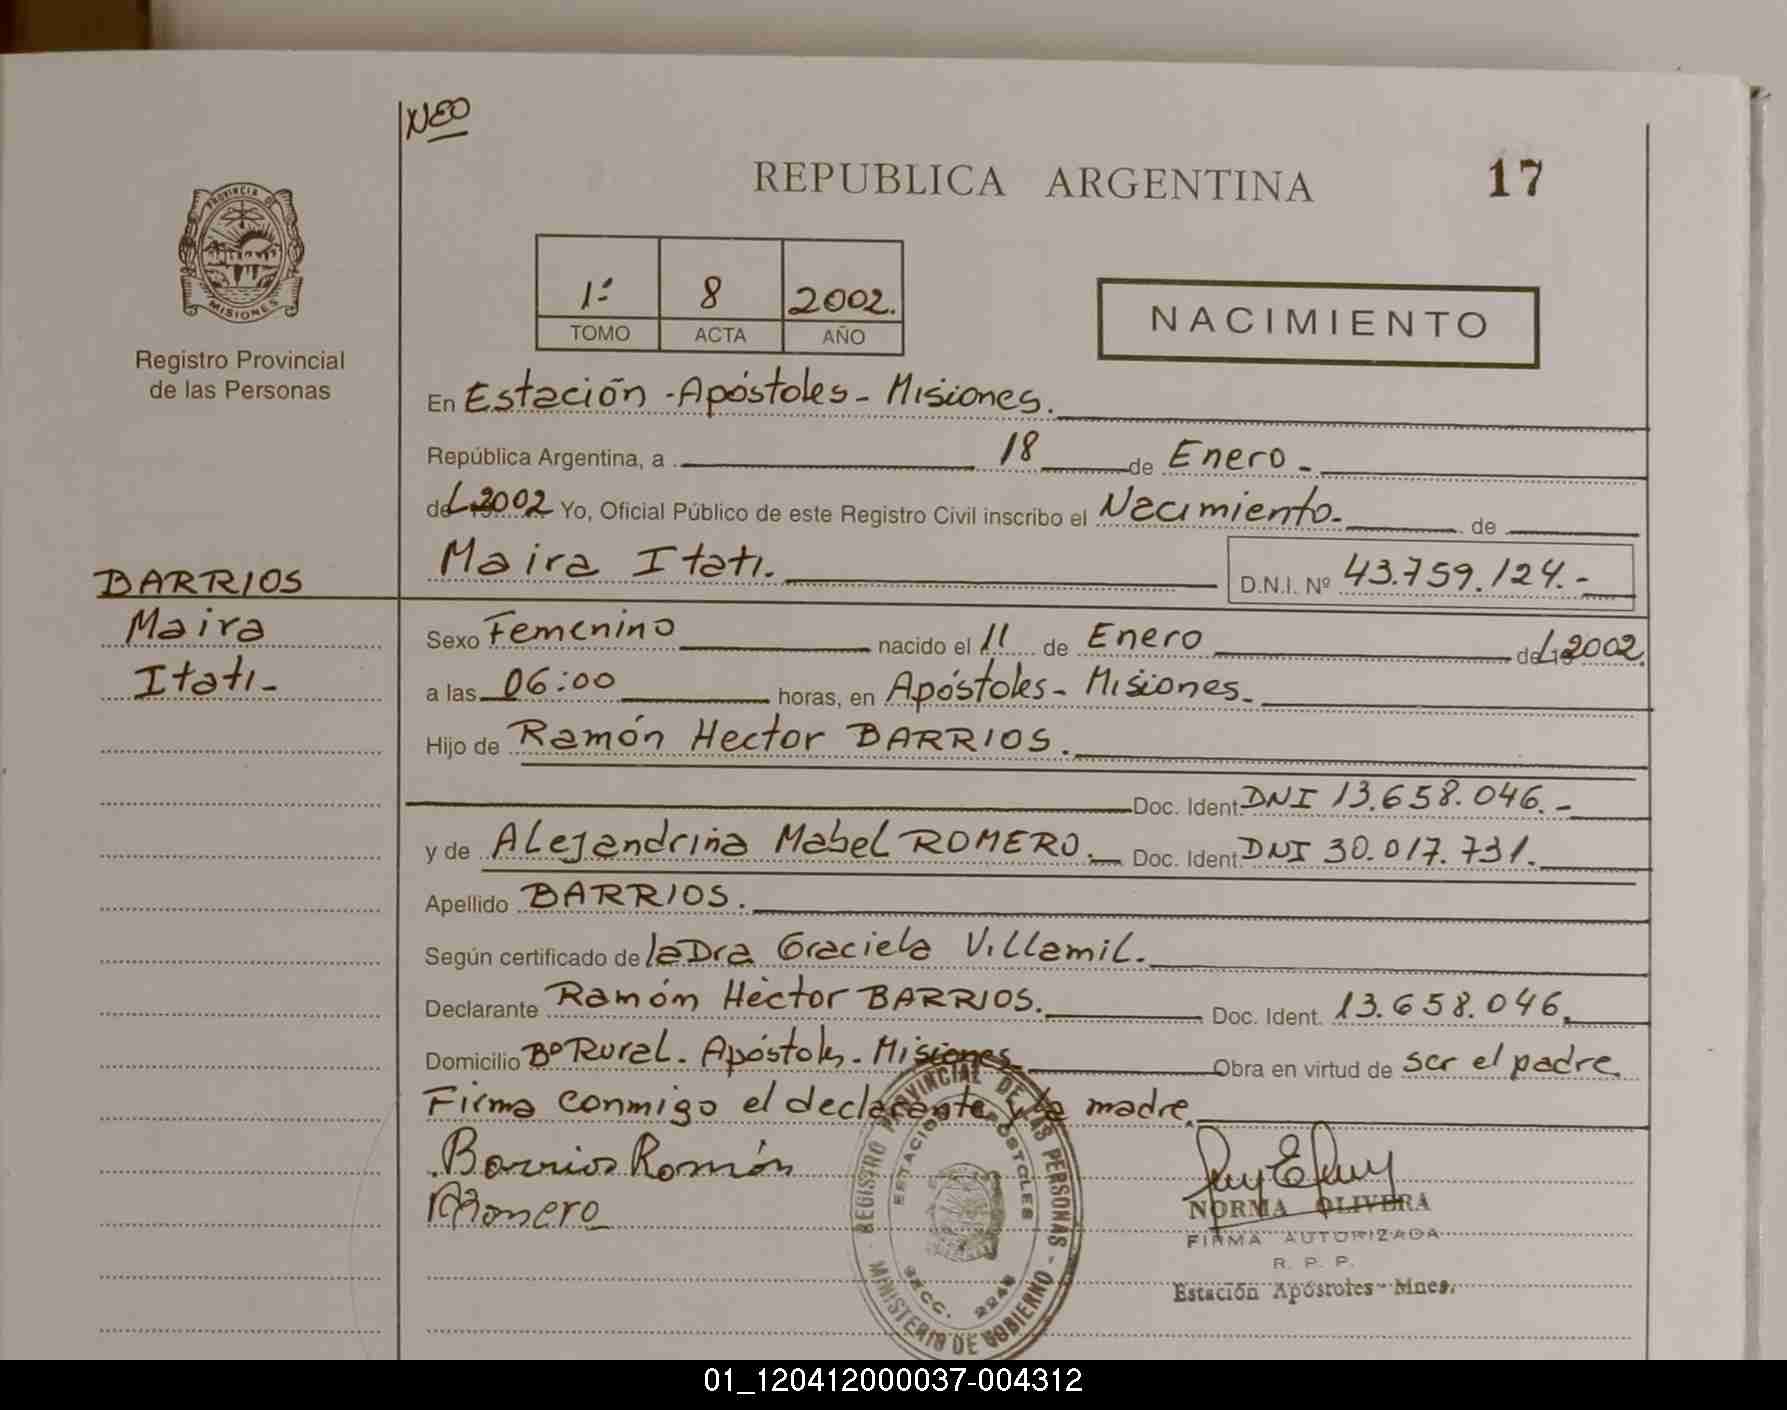 NEO
REPUBLICA ARGENTINA
17
PROVINCIA DE MISIONES
Registro Provincial
de las Personas
1ª 8 2002.
TOMO ACTA AÑO
NACIMIENTO
En Estación - Apóstoles - Misiones.
República Argentina, a 18 de Enero -
del 2002 Yo, Oficial Público de este Registro Civil inscribo el Nacimiento - de
Maira Itatí. D.N.I. Nº 43.759.124.-
BARRIOS
Maira
Itatí -
Sexo Femenino nacido el 11 de Enero del 2002.
a las 06:00 horas, en Apóstoles - Misiones.
Hijo de Ramón Hector BARRIOS.
Doc. Ident. DNI 13.658.046.-
y de Alejandrina Mabel ROMERO. Doc. Ident. DNI 30.017.731.
Apellido BARRIOS.
Según certificado de la Dra Graciela Villamil.
Declarante Ramón Héctor BARRIOS. Doc. Ident. 13.658.046.
Domicilio Bº Rural. Apóstoles. Misiones Obra en virtud de ser el padre.
Firma conmigo el declarante y la madre.
Barrios Ramón
Romero
REGISTRO PROVINCIAL DE LAS PERSONAS
ESTACION APOSTOLES
SECC. 2248
MINISTERIO DE GOBIERNO
NORMA OLIVERA
FIRMA AUTORIZADA
R. P. P.
Estación Apóstoles - Mnes.
01_120412000037-004312